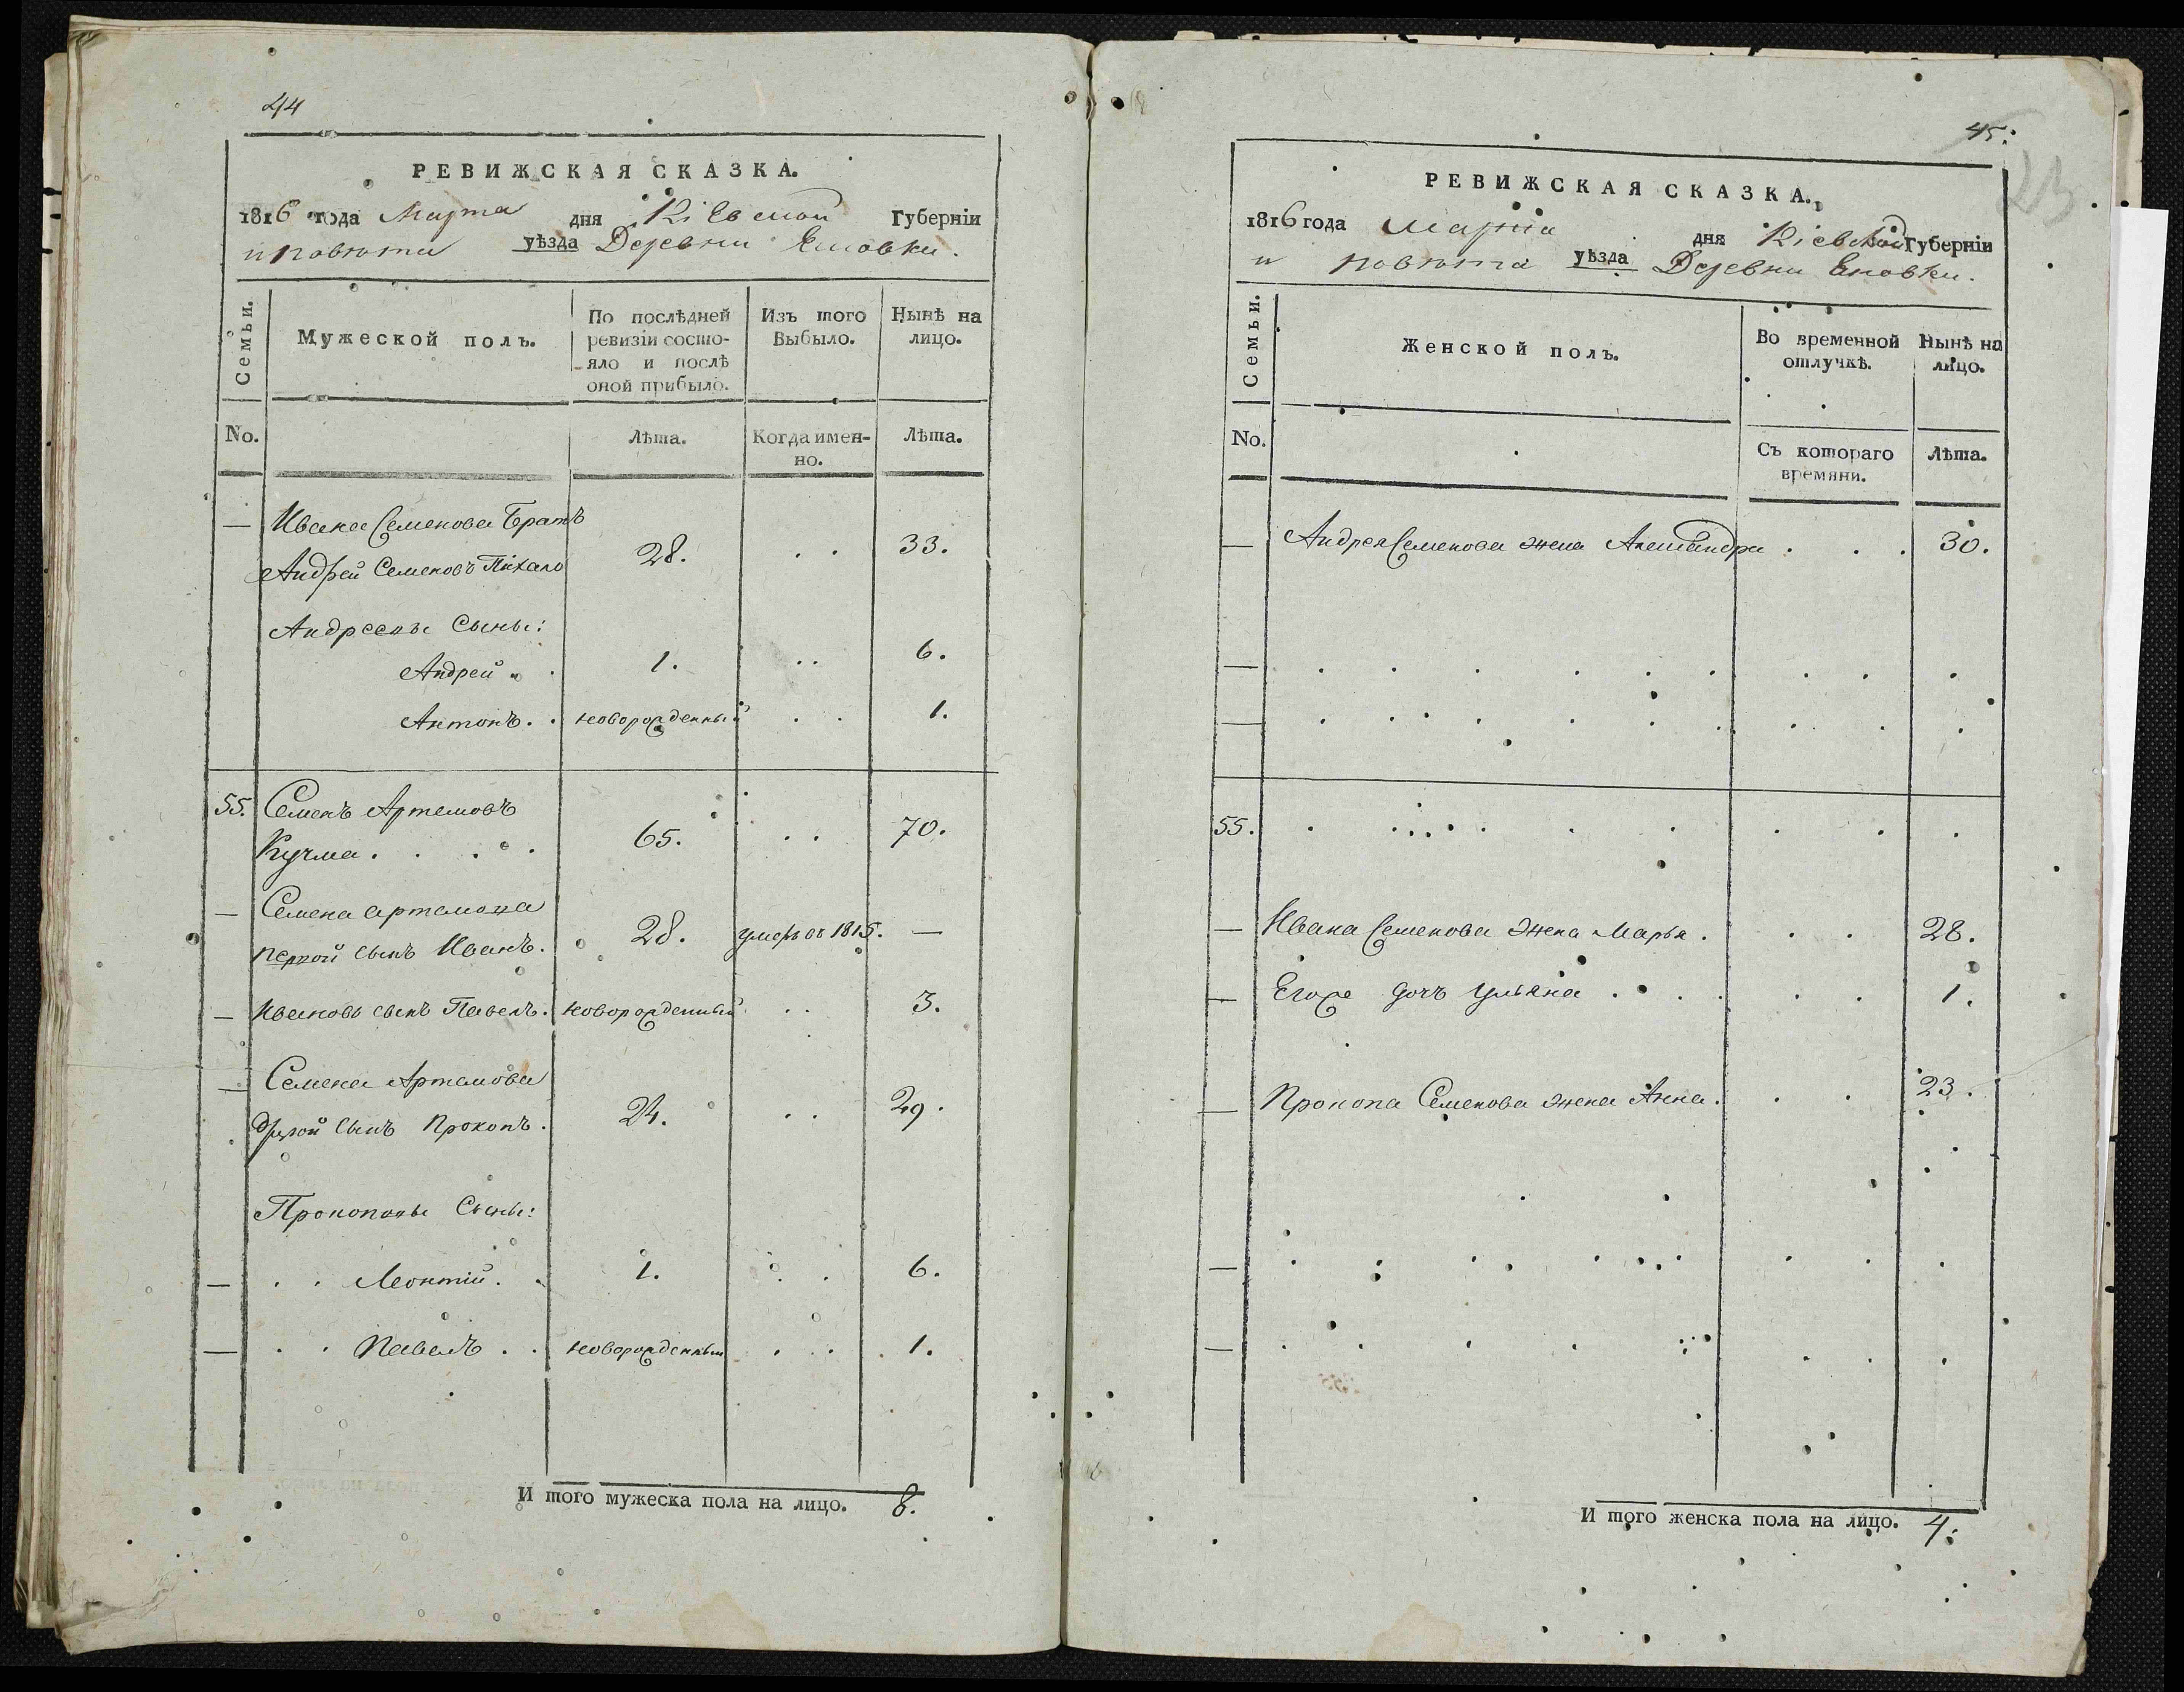 44
РЕВИЖСКАЯ СКАЗКА.
1816 года Марта дня Кіевской Губерніи
и повѣта уѣзда Деревни Еновки.
Семьи.
Мужеской полъ.
По послѣдней ревизіи состо-
яло и послѣ
оной прибыло.
Изъ того
Выбыло.
Нынѣ на
лицо.
No.
Лѣта.
Когда имен-
но.
Лѣта.
— Ивана Семенова Братъ
Андрей Семеновъ 28. . . 33.
Андреевы Сыны:
Андрей . . 1. . . 6.
Антонъ . . новорожденный . . 1.
55. Семенъ Артемовъ
Кучма . . . . 65. . . 70.
— Семена Артемова
первой сынъ Иванъ. 28. умеръ въ 1815. —
— Ивановъ сынъ Павелъ. новорожденный . . 3.
— Семена Артемова
другой сынъ Прокопъ. 24. . . 29.
Прокоповы Сыны:
— . . Леонтій. . 1. . . 6.
— . . Павелъ . . новорожденный . . 1.
И того мужеска пола на лицо. 8.
45.
23
РЕВИЖСКАЯ СКАЗКА.
1816 года Марта дня Кіевской Губерніи
и повѣта уѣзда Деревни Еновки.
Семьи.
Женской полъ.
Во временной
отлучкѣ.
Нынѣ на
лицо.
No.
Съ котораго
времяни.
Лѣта.
— Андрея Семенова жена Александра . . . 30.
55.
— Ивана Семенова жена Марья . . . 28.
— Егоже дочь Ульяна . . . . 1.
— Прокопа Семенова жена Анна. . . 23.
И того женска пола на лицо. 4.